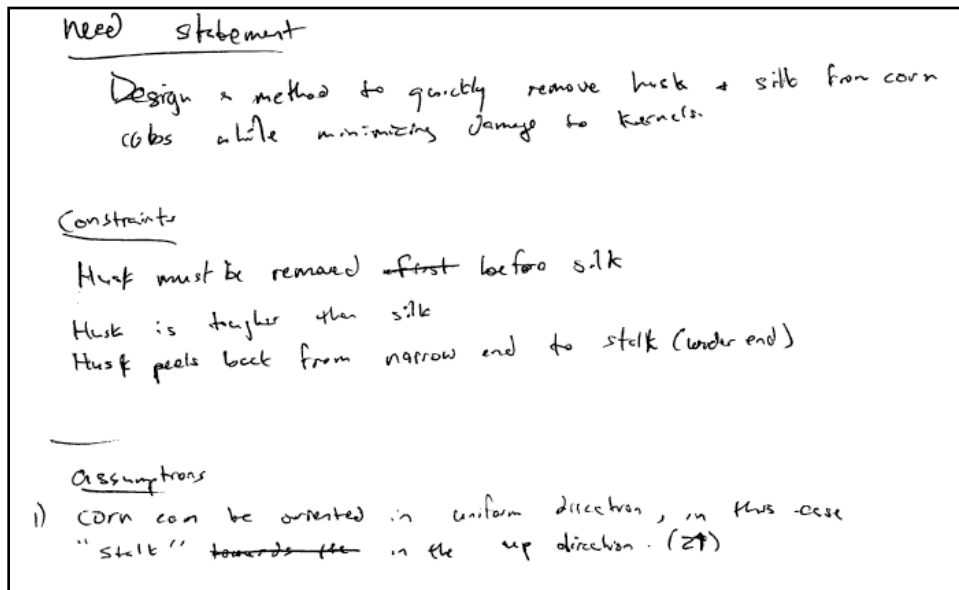 need statement
Design a method to quickly remove husk + silk from corn
cobs while minimizing damage to kernels.
Constraints
Husk must be removed first before silk
Husk is tougher than silk
Husk peels back from narrow end to stalk (wider end)
assumptions
1) corn can be oriented in uniform direction, in this case
"stalk" towards the in the up direction. (z↑)